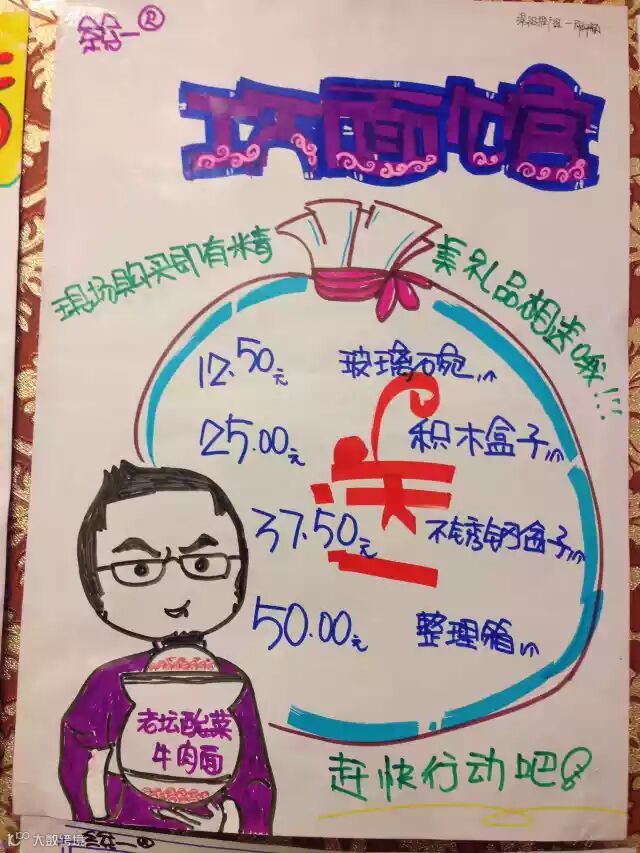 统一®
坛面馆
现场购买即有精
美礼品相送哦!!!
12.50元 玻璃碗
25.00元 积木盒子
送
37.50元 不锈钢盒子
50.00元 整理箱
老坛酸菜
牛肉面
赶快行动吧
大数跨境